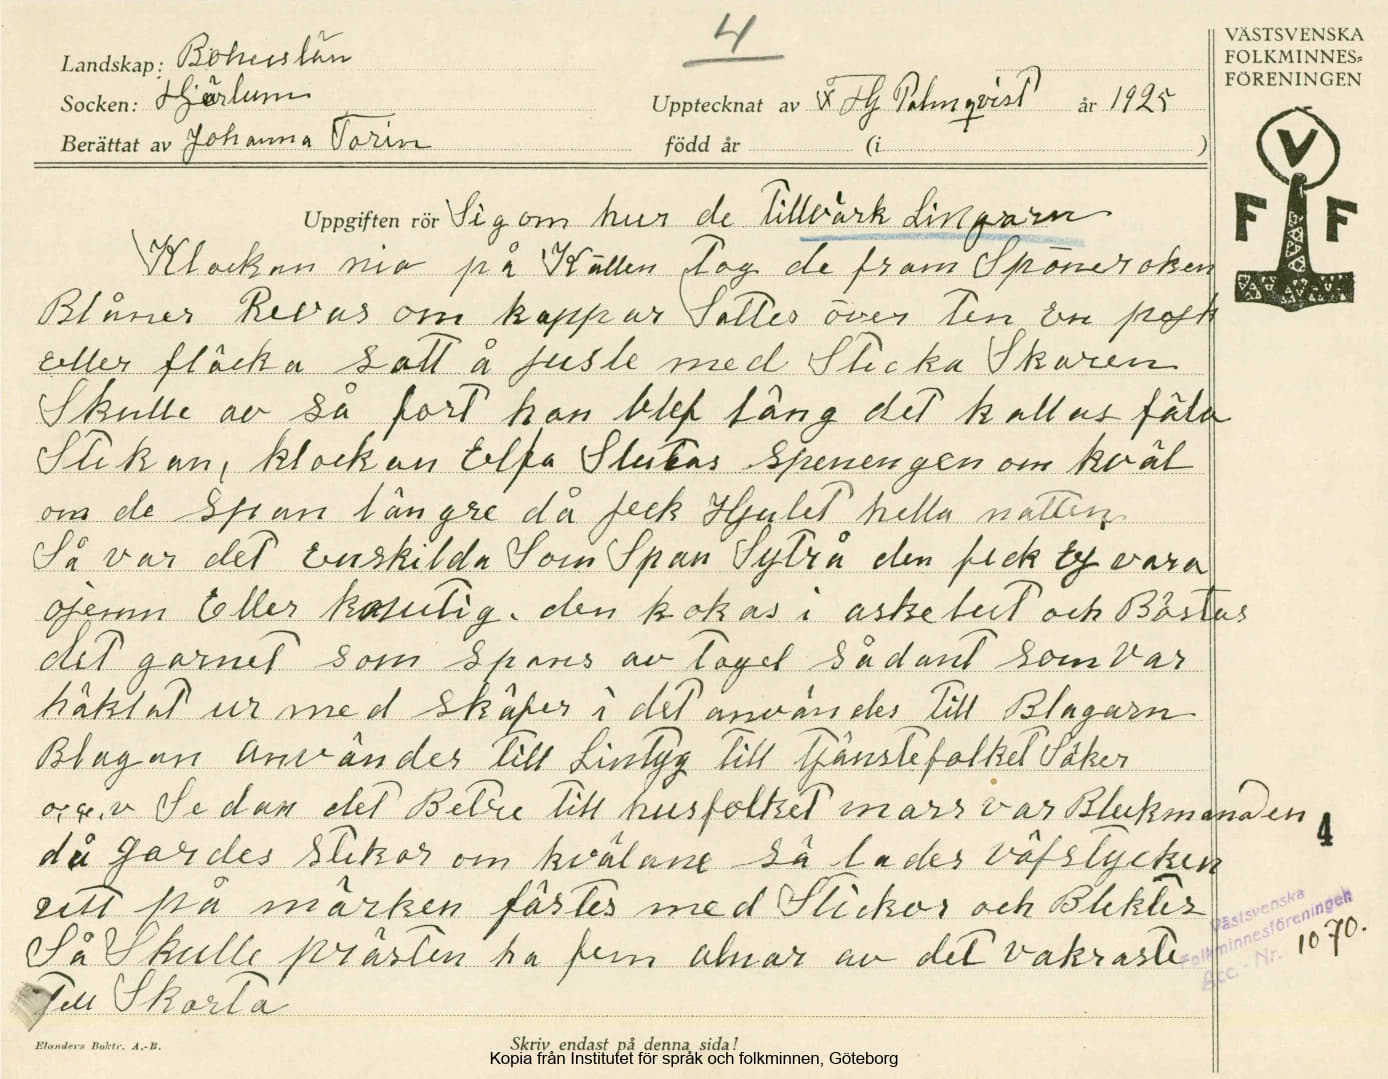 4
VÄSTSVENSKA
FOLKMINNES-
FÖRENINGEN
Landskap: Bohuslän
Socken: Hjärlum
Upptecknat av Hj Palmqvist år 1925
Berättat av Johanna Torin
född år (i )
V
F F
Uppgiften rör Sig om hur de tillvärk Lingarn
Klockan nio på Källen tog de fram Spöneroken
Blåner Revas om kappar Sattes över ten en pojk
eller fläcka satt å juste med Sticka Skaren
Skulle av så fort han blef lång det kallas fäla
Stikan, klockan Elfa Slutas spenengen om kväl
om de span längre då feck Hjulet hella natten
Så var det Enskilda Som Span Sytrå den feck Ej vara
ojemn Eller knutig. den kokas i askelut och Böstas
det garnet som spans av tagel sådant som var
häklat ur med skäfer i det användes till Blagarn
Blagan användes till Lintyg till tjänstefolket Säker
o.s.v Sedan det Betre till husfolket mars var Blekmånaden
då gardes stikor om kvälane så lades väfstycken
utt på marken fästes med Stickor och Blektes
Så Skulle prästen ha fem alnar av det vakraste
Till Skorta
4
Västsvenska
Folkminnesföreningen
Acc.-Nr. 1070.
Elanders Boktr. A.-B.
Skriv endast på denna sida!
Kopia från Institutet för språk och folkminnen, Göteborg